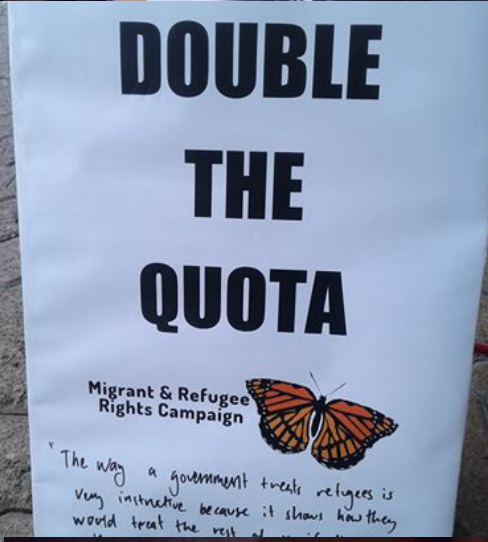 DOUBLE
THE
QUOTA
Migrant & Refugee
Rights Campaign
"The way a government treats refugees is
very instructive because it shows how they
would treat the rest of